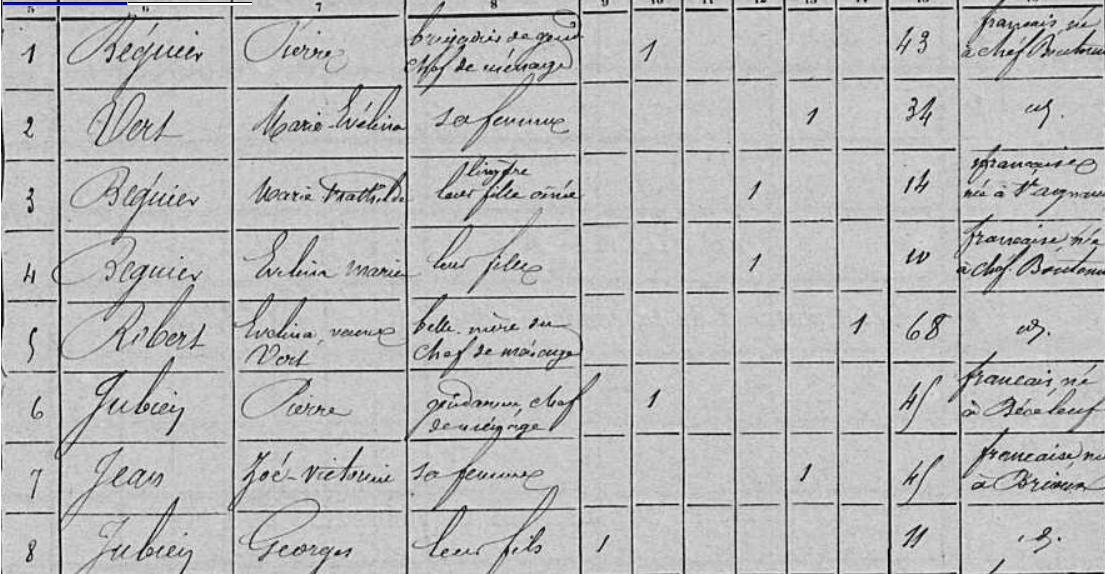 5 6 7 8 9 10 11 12 13 14
1 Béguier Pierre brigadier de gend. chef de ménage 1 43 français né à chef Boutonne
2 Vert Marie-Evélina sa femme 1 34 id.
3 Béguier Marie Mathilde lingère leur fille aînée 1 14 française née à St
4 Béguier Evelina marie leur fille 1 10 française née à chef. Boutonne
5 Robert Evelina, veuve Vert belle-mère du chef de ménage 1 68 id.
6 Jubien Pierre gendarme, chef de ménage 1 45 français, né à Béceleuf
7 Jean Zoé-Victorine sa femme 1 45 française née à Brioux
8 Jubien Georges leur fils 1 11 id.